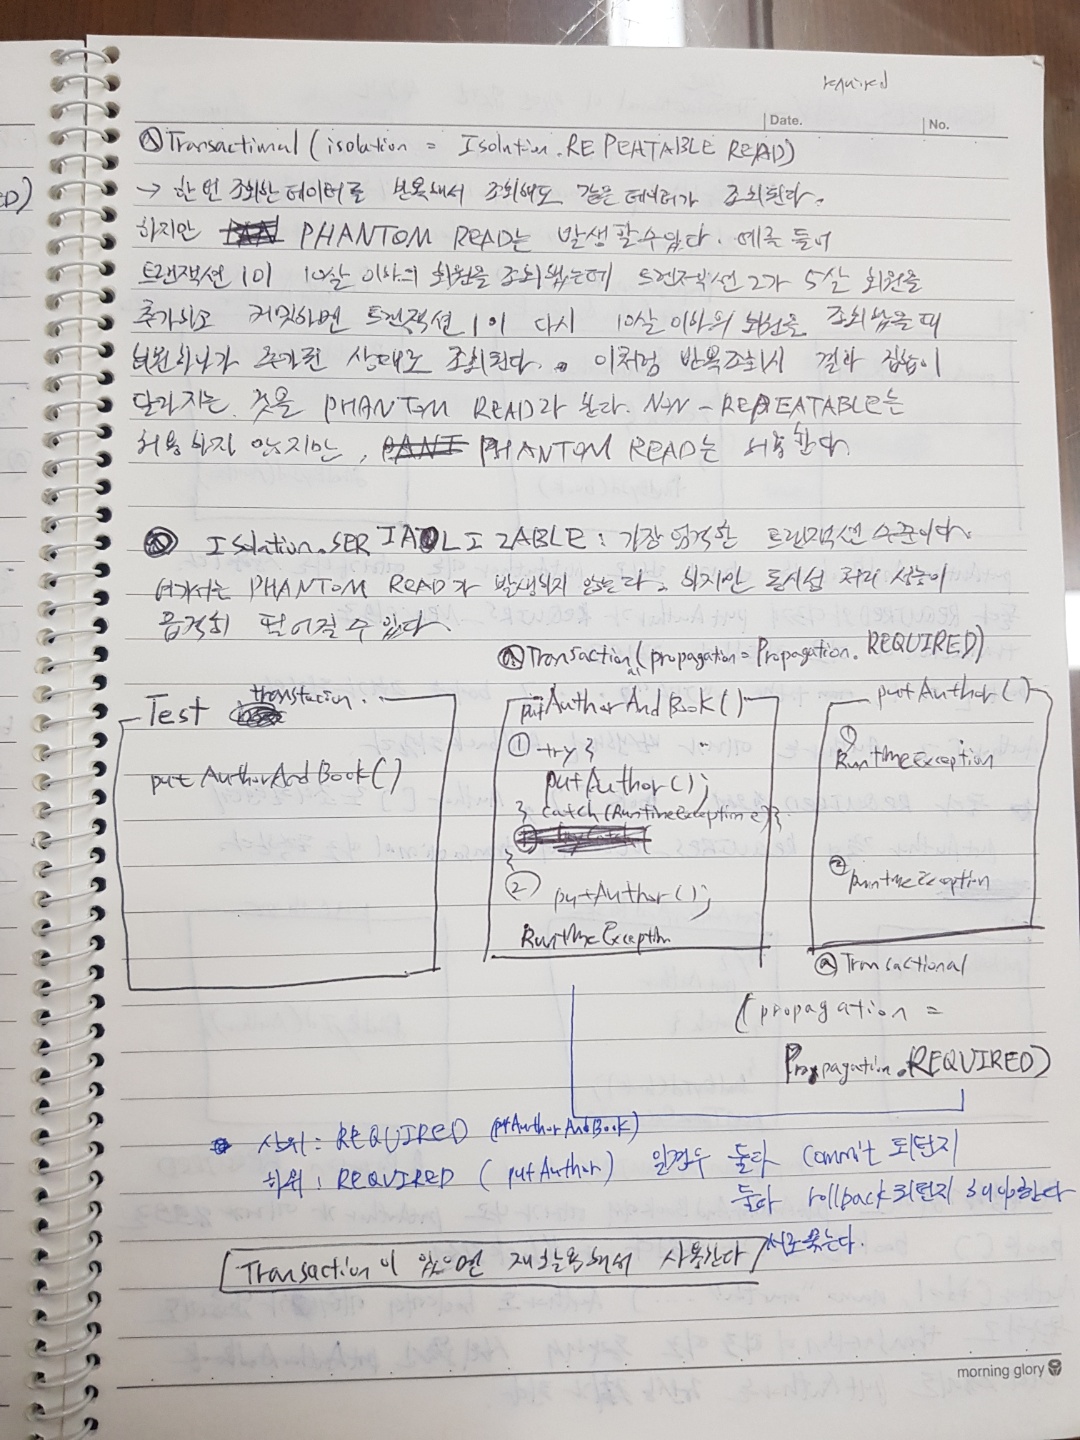 required
Date.
No.
@Transactional (isolation = Isolation.REPEATABLE READ)
→ 한번 조회한 데이터를 반복해서 조회해도 같은 데이터가 조회된다.
하지만 PHANTOM READ는 발생할 수 있다. 예를 들어
트랜잭션 1이 10살 이하의 회원을 조회했는데 트랜잭션 2가 5살 회원을
추가하고 커밋하면 트랜잭션 1이 다시 10살 이하의 회원을 조회했을 때
회원하나가 추가된 상태로 조회된다. 이처럼 반복조회시 결과 집합이
달라지는 것을 PHANTOM READ라 한다. NON-REPEATABLE는
허용하지 않지만, PHANTOM READ는 허용한다.
Isolation.SERIALIZABLE : 가장 엄격한 트랜잭션 수준이다.
여기서는 PHANTOM READ가 발생하지 않는다. 하지만 동시성 처리 성능이
급격히 떨어질 수 있다.
@Transactional (propagation = Propagation.REQUIRED)
Test
putAuthorAndBook()
putAuthorAndBook()
① try {
putAuthor();
} catch (RuntimeException e) {
}
② putAuthor();
RuntimeException
putAuthor()
①
RuntimeException
②
RuntimeException
@Transactional
(propagation =
Propagation.REQUIRED)
상위 : REQUIRED (putAuthorAndBook)
하위 : REQUIRED (putAuthor) 일경우 둘다 commit 되던지
둘다 rollback되던지 해야한다
서로 묶는다.
Transaction이 있으면 재활용해서 사용한다
morning glory